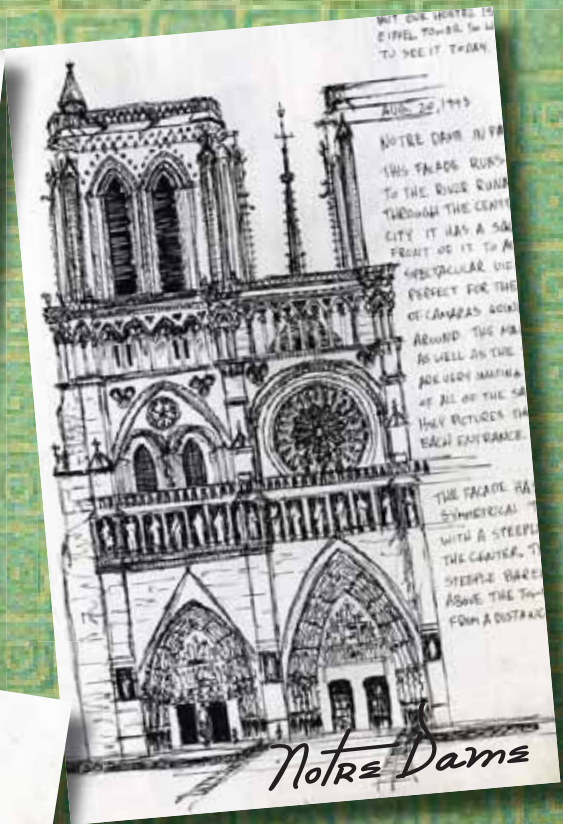 BUT OUR HOSTEL IS
EIFFEL TOWER SO W
TO SEE IT TODAY.
AUG. 20, 1993
NOTRE DAME IN PA
THIS FACADE RUNS
TO THE RIVER RUNN
THROUGH THE CENT
CITY IT HAS A
FRONT OF IT TO
SPECTACULAR
PERFECT FOR THE
OF CAMARAS
AROUND THE
AS WELL AS THE
ARE VERY
OF ALL OF THE SA
HOLY PICTURES
EACH ENTRANCE.
THE FACADE HA
SYMMETRICAL
WITH A STEEPL
THE CENTER. T
STEEPLE BARE
ABOVE THE TOW
FROM A DISTANC
Notre Dame